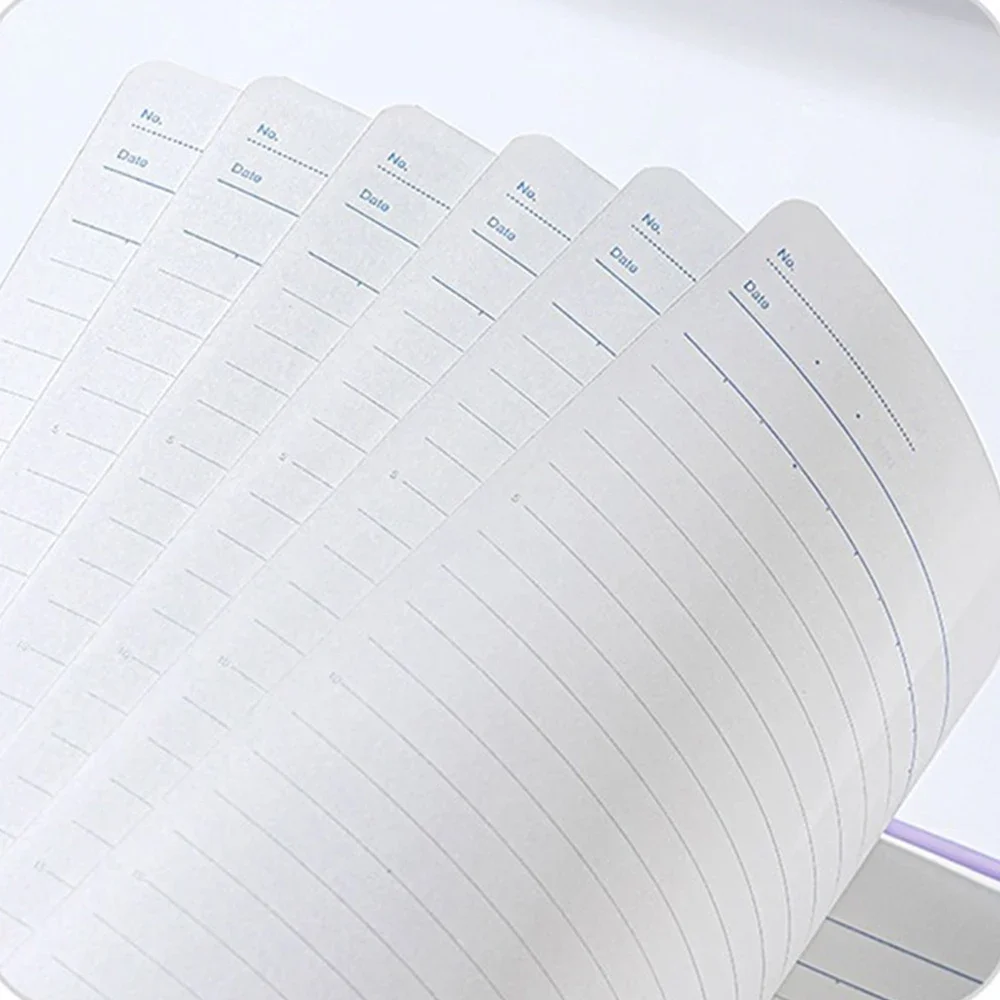 No.
Date
5
10
No.
Date
5
10
No.
Date
5
10
No.
Date
5
No.
Date
No.
Date
5
10
15